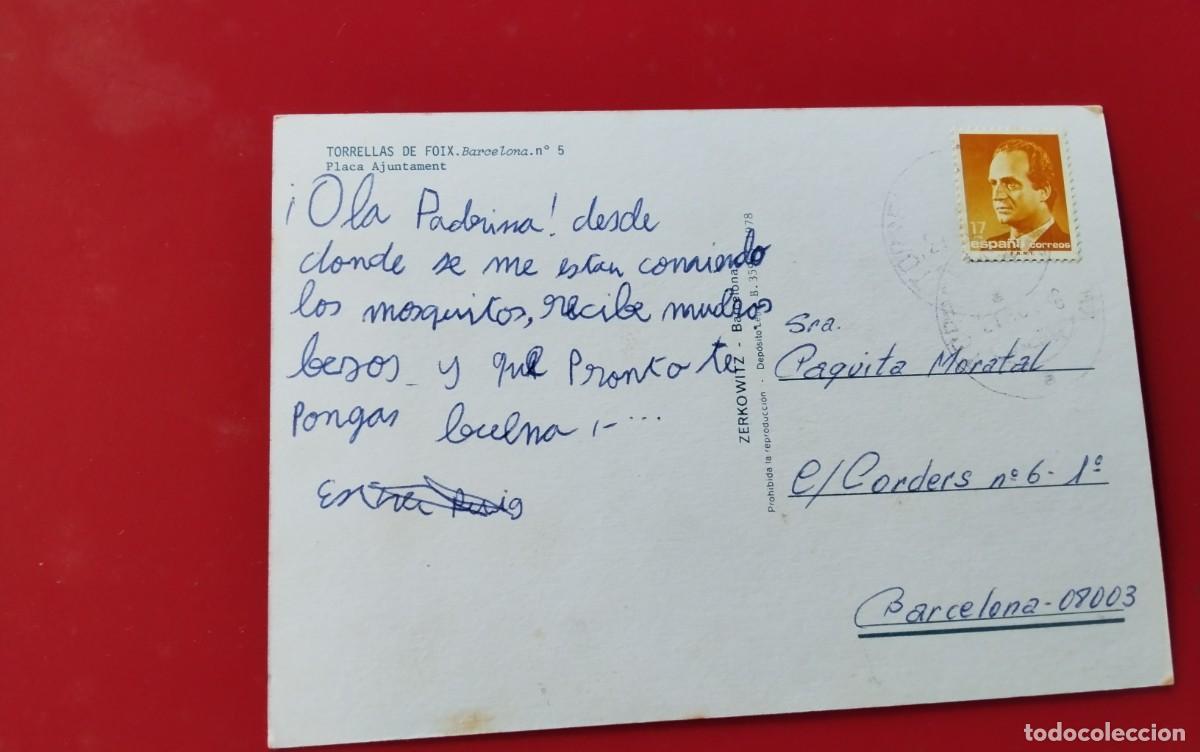 TORRELLAS DE FOIX.Barcelona.n° 5
Placa Ajuntament
¡Ola Padrina! desde
donde se me estan comiendo
los mosquitos, recibe muchos
besos y que Pronto te
Pongas buena,-...
Puig
ZERKOWITZ - Barcelona
Prohibida la reproducción - Depósito B. 978
17
españa correos
F.N.M.T.
Sra.
Paquita Moratal
C/ Corders nº 6 - 1º
Barcelona - 08003
todocoleccion